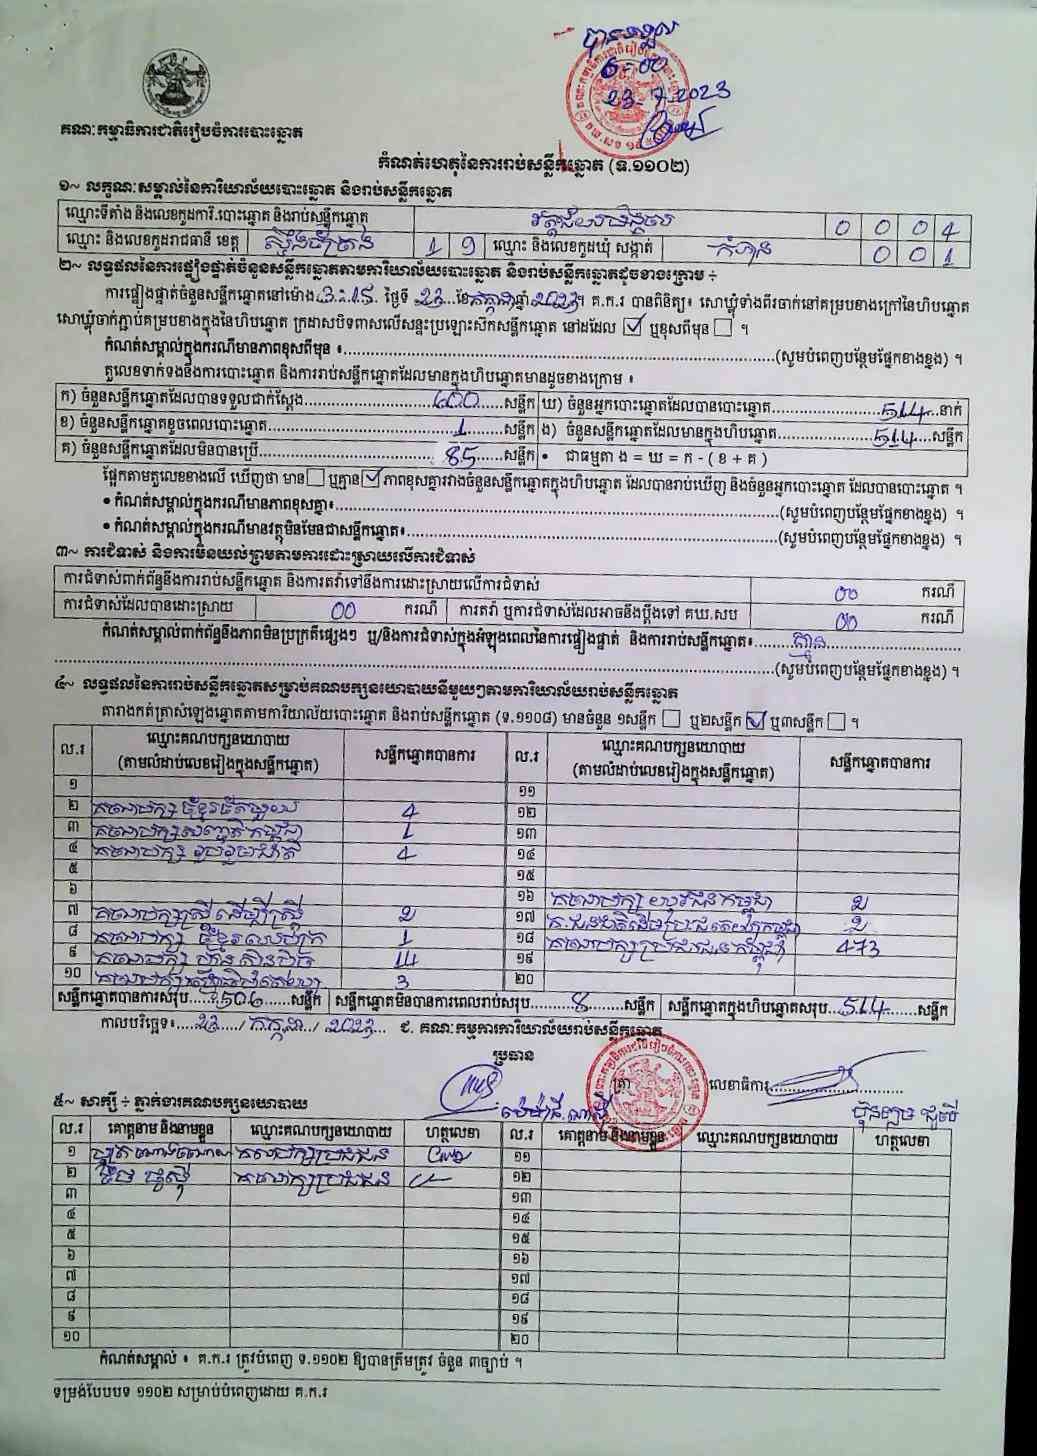 បានទទួល
6-00
23-7-2023
គណៈកម្មាធិការជាតិរៀបចំការបោះឆ្នោត
កំណត់ហេតុនៃការរាប់សន្លឹកឆ្នោត (ទ.១១០២)
១~ លក្ខណៈសម្គាល់នៃការិយាល័យបោះឆ្នោត និងរាប់សន្លឹកឆ្នោត
ឈ្មោះទីតាំង និងលេខកូដការិ.បោះឆ្នោត និងរាប់សន្លឹកឆ្នោត 0 0 0 4
ឈ្មោះ និងលេខកូដរាជធានី ខេត្ត ស្ទឹងត្រែង 1 9 ឈ្មោះ និងលេខកូដឃុំ សង្កាត់ កំភុន 0 0 1
២~ លទ្ធផលនៃការផ្ទៀងផ្ទាត់ចំនួនសន្លឹកឆ្នោតតាមការិយាល័យបោះឆ្នោត និងរាប់សន្លឹកឆ្នោតដូចខាងក្រោម ÷
ការផ្ទៀងផ្ទាត់ចំនួនសន្លឹកឆ្នោតនៅម៉ោង 3:15 ថ្ងៃទី 23 ខែ កក្កដា ឆ្នាំ 2023 ។ គ.ក.រ បានពិនិត្យ៖ សោឃ្លុំទាំងពីរចាក់នៅគម្របខាងក្រៅនៃហិបឆ្នោត
សោឃ្លុំចាក់ភ្ជាប់គម្របខាងក្នុងនៃហិបឆ្នោត ក្រដាសបិទពាសលើសន្ទះប្រឡោះសឹកសន្លឹកឆ្នោត នៅដដែល ☑ ឬខុសពីមុន ☐ ។
កំណត់សម្គាល់ក្នុងករណីមានភាពខុសពីមុន ៖ (សូមបំពេញបន្ថែមផ្នែកខាងខ្នង) ។
តួលេខទាក់ទងនឹងការបោះឆ្នោត និងការរាប់សន្លឹកឆ្នោតដែលមានក្នុងហិបឆ្នោតមានដូចខាងក្រោម ៖
ក) ចំនួនសន្លឹកឆ្នោតដែលបានទទួលជាក់ស្ដែង 600 សន្លឹក ឃ) ចំនួនអ្នកបោះឆ្នោតដែលបានបោះឆ្នោត 514 នាក់
ខ) ចំនួនសន្លឹកឆ្នោតខូចពេលបោះឆ្នោត 1 សន្លឹក ង) ចំនួនសន្លឹកឆ្នោតដែលមានក្នុងហិបឆ្នោត 514 សន្លឹក
គ) ចំនួនសន្លឹកឆ្នោតដែលមិនបានប្រើ 85 សន្លឹក • ជាធម្មតា ង = ឃ = ក - ( ខ + គ )
ផ្អែកតាមតួលេខខាងលើ ឃើញថា មាន ☐ ឬគ្មាន ☑ ភាពខុសគ្នារវាងចំនួនសន្លឹកឆ្នោតក្នុងហិបឆ្នោត ដែលបានរាប់ឃើញ និងចំនួនអ្នកបោះឆ្នោត ដែលបានបោះឆ្នោត ។
• កំណត់សម្គាល់ក្នុងករណីមានភាពខុសគ្នា៖ (សូមបំពេញបន្ថែមផ្នែកខាងខ្នង) ។
• កំណត់សម្គាល់ក្នុងករណីមានវត្ថុមិនមែនជាសន្លឹកឆ្នោត៖ (សូមបំពេញបន្ថែមផ្នែកខាងខ្នង) ។
៣~ ការជំទាស់ និងការមិនយល់ព្រមតាមការដោះស្រាយលើការជំទាស់
ការជំទាស់ពាក់ព័ន្ធនឹងការរាប់សន្លឹកឆ្នោត និងការតវ៉ាទៅនឹងការដោះស្រាយលើការជំទាស់ 00 ករណី
ការជំទាស់ដែលបានដោះស្រាយ 00 ករណី ការតវ៉ា ឬការជំទាស់ដែលអាចនឹងប្ដឹងទៅ គឃ.សប 00 ករណី
កំណត់សម្គាល់ពាក់ព័ន្ធនឹងភាពមិនប្រក្រតីផ្សេងៗ ឬ/និងការជំទាស់ក្នុងអំឡុងពេលនៃការផ្ទៀងផ្ទាត់ និងការរាប់សន្លឹកឆ្នោត៖ គ្មាន
(សូមបំពេញបន្ថែមផ្នែកខាងខ្នង) ។
៤~ លទ្ធផលនៃការរាប់សន្លឹកឆ្នោតសម្រាប់គណបក្សនយោបាយនីមួយៗតាមការិយាល័យរាប់សន្លឹកឆ្នោត
តារាងកត់ត្រាសំឡេងឆ្នោតតាមការិយាល័យបោះឆ្នោត និងរាប់សន្លឹកឆ្នោត (ទ.១១០៨) មានចំនួន ១សន្លឹក ☐ ឬ២សន្លឹក ☑ ឬ៣សន្លឹក ☐ ។
ល.រ ឈ្មោះគណបក្សនយោបាយ (តាមលំដាប់លេខរៀងក្នុងសន្លឹកឆ្នោត) សន្លឹកឆ្នោតបានការ ល.រ ឈ្មោះគណបក្សនយោបាយ (តាមលំដាប់លេខរៀងក្នុងសន្លឹកឆ្នោត) សន្លឹកឆ្នោតបានការ
១ ១១
២ គណបក្ស ខ្មែររួបរួម 4 ១២
៣ គណបក្ស សញ្ជាតិកម្ពុជា 1 ១៣
៤ គណបក្ស រួបរួមជាតិ 4 ១៤
៥ ១៥
៦ ១៦ គណបក្ស យុវជនកម្ពុជា 2
៧ គណបក្ស ស្ត្រីដើម្បីស្ត្រី 2 ១៧ គ.ជនជាតិដើមប្រជាធិបតេយ្យកម្ពុជា 2
៨ គណបក្ស ខ្មែរ 1 ១៨ គណបក្ស ប្រជាជនកម្ពុជា 473
៩ គណបក្ស ហ៊្វុនស៊ិនប៉ិច ១៩
១០ គណបក្ស 3 ២០
សន្លឹកឆ្នោតបានការសរុប 506 សន្លឹក សន្លឹកឆ្នោតមិនបានការពេលរាប់សរុប 8 សន្លឹក សន្លឹកឆ្នោតក្នុងហិបឆ្នោតសរុប 514 សន្លឹក
កាលបរិច្ឆេទ៖ 23 / កក្កដា / 2023 ជ. គណៈកម្មការការិយាល័យរាប់សន្លឹកឆ្នោត
ប្រធាន
ត្រា លេខាធិការ
៥~ សាក្សី ÷ ភ្នាក់ងារគណបក្សនយោបាយ
ល.រ គោត្តនាម និងនាមខ្លួន ឈ្មោះគណបក្សនយោបាយ ហត្ថលេខា ល.រ គោត្តនាម និងនាមខ្លួន ឈ្មោះគណបក្សនយោបាយ ហត្ថលេខា
១ គណបក្សប្រជាជន ១១
២ គណបក្សប្រជាជន ១២
៣ ១៣
៤ ១៤
៥ ១៥
៦ ១៦
៧ ១៧
៨ ១៨
៩ ១៩
១០ ២០
កំណត់សម្គាល់ ៖ គ.ក.រ ត្រូវបំពេញ ទ.១១០២ ឱ្យបានត្រឹមត្រូវ ចំនួន ៣ច្បាប់ ។
ទម្រង់បែបបទ ១១០២ សម្រាប់បំពេញដោយ គ.ក.រ